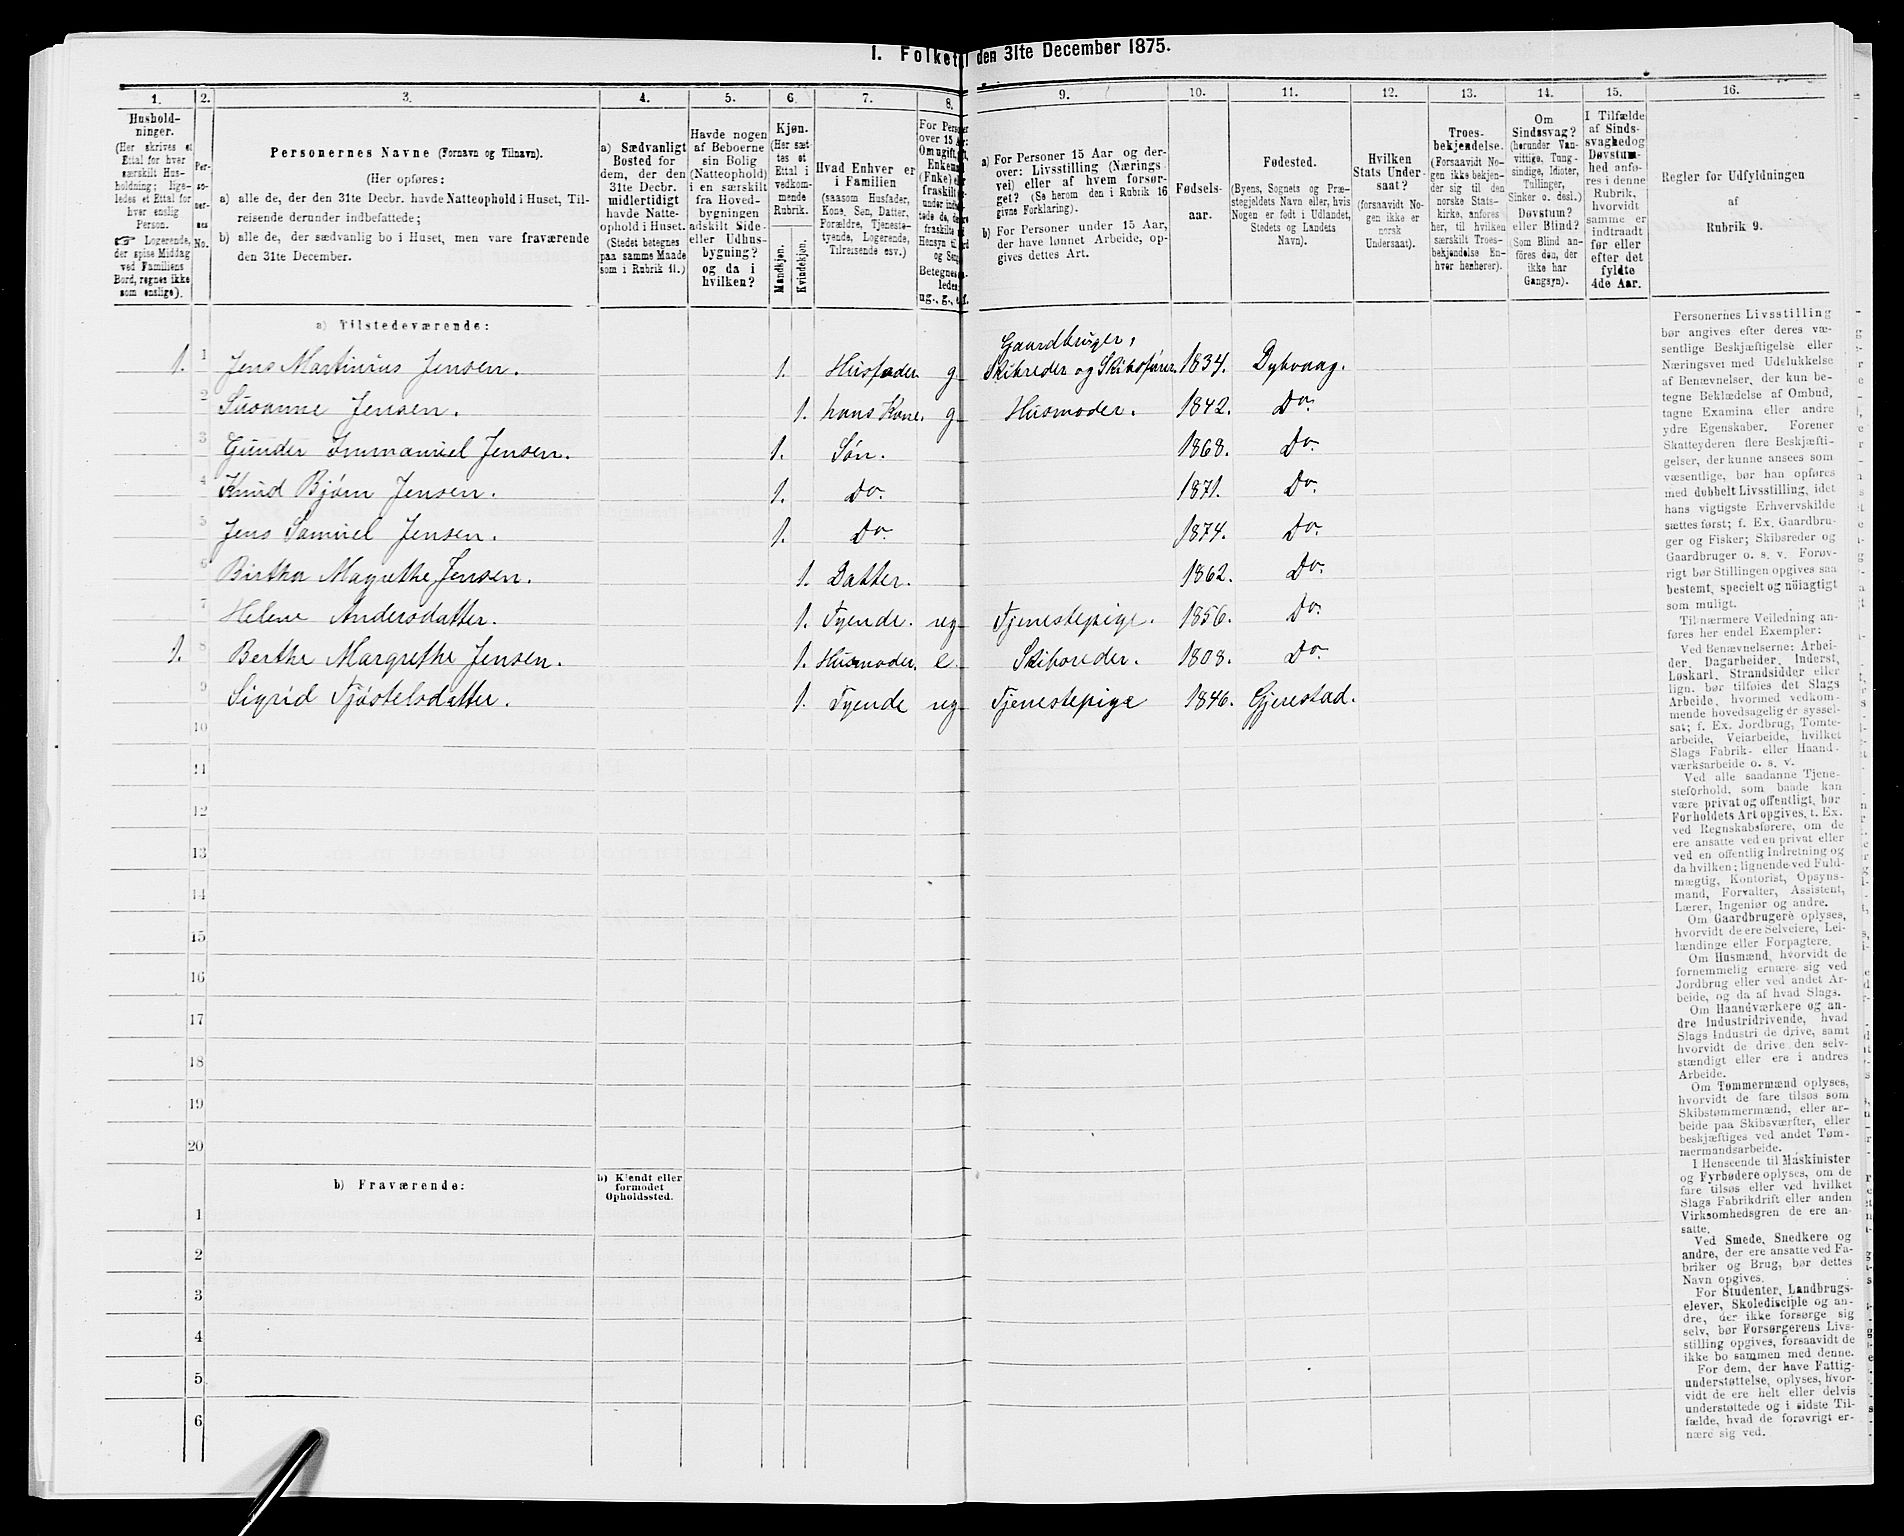 1. Folketal den 31te December 1875.
1. 2. 3. 4. 5. 6. 7. 8. 9. 10. 11. 12. 13. 14. 15. 16.
Hushold-
ninger.
(Her skrives et
Ettal for hver
særskilt Hus-
holdning; lige-
ledes et Ettal for
hver enslig
Person.
☞ Logerende,
der spise Middag
ved Familiens
Bord, regnes ikke
som enslige).
Per-
so-
ner-
nes
No.
Personernes Navne (Fornavn og Tilnavn).
(Her opføres:
a) alle de, der den 31te Decbr. havde Natteophold i Huset, Til-
reisende derunder indbefattede;
b) alle de, der sædvanlig bo i Huset, men vare fraværende
den 31te December.
a) Sædvanligt
Bosted for
dem, der den
31te Decbr.
midlertidigt
havde Natte-
ophold i Huset.
(Stedet betegnes
paa samme Maade
som i Rubrik 11.)
Havde nogen
af Beboerne
sin Bolig
(Natteophold)
i en særskilt
fra Hoved-
bygningen
adskilt Side-
eller Udhus-
bygning?
og da i
hvilken?
Kjøn.
(Her sæt-
tes et
Ettal i
vedkom-
mende
Rubrik.
Mandkjøn.
Kvindekjøn.
Hvad Enhver er
i Familien
(saasom Husfader,
Kone, Søn, Datter,
Forældre, Tjeneste-
tyende, Logerende,
Tilreisende osv.)
For Personer
over 15 Aar:
Om ugift, gift,
Enkemand
(Enke) eller
fraskilt
Betegnes saa-
ledes:
ug., g., e., f.
a) For Personer 15 Aar og der-
over: Livsstilling (Nærings-
vei) eller af hvem forsør-
get? (Se herom den i Rubrik 16
givne Forklaring).
b) For Personer under 15 Aar,
der have lønnet Arbeide, op-
gives dettes Art.
Fødsels-
aar.
Fødested.
(Byens, Sognets og Præ-
stegjeldets Navn eller, hvis
Nogen er født i Udlandet,
Stedets og Landets
Navn).
Hvilken
Stats Under-
saat?
(forsaavidt No-
gen ikke er
norsk
Undersaat).
Troes-
bekjendelse.
(Forsaavidt No-
gen ikke bekjen-
der sig til den
norske Stats-
kirke, anføres
her, til hvilken
særskilt Troes-
bekjendelse En-
hver henhører).
Om
Sindssvag?
(herunder Van-
vittige, Tung-
sindige, Idioter,
Tullinger,
Sinker o. desl.)
Døvstum?
eller Blind?
(Som Blind an-
føres den, der
ikke har
Gangsyn).
I Tilfælde
af Sinds-
svaghed og
Døvstum-
hed anfø-
res i denne
Rubrik,
hvorvidt
samme er
indtraadt
før eller
efter det
fyldte
4de Aar.
Regler for Udfyldningen
af
Rubrik 9.
a) Tilstedeværende:
1. 1 Jens Martinius Jensen. 1. Husfader g Gaardbruger, Skibreder og Skibsfører 1834. Dybvaag.
2 Susanne Jensen. 1. hans Kone. g Husmoder. 1842. Do.
3 Gunder Immanuel Jensen. 1. Søn. 1868. Do.
4 Knud Bjørn Jensen. 1. Do. 1871. Do.
5 Jens Samuel Jensen. 1. Do. 1874. Do.
6 Birtha Magrethe Jensen. 1. Datter. 1862. Do.
7 Helene Andersdatter. 1. Tyende. ug Tjenestepige. 1856. Do.
1. 8 Berthe Margrethe Jensen. 1. Husmoder. e. Skibsreder. 1808. Do.
9 Sigrid Tjøstelsdatter. 1. Tyende ug Tjenestepige 1846. Gjerestad.
10
11
12
13
14
15
16
17
18
19
20
b) Fraværende:
b) Kjendt eller
formodet
Opholdssted.
1
2
3
4
5
6
Personernes Livsstilling
bør angives efter deres væ-
sentlige Beskjæftigelse eller
Næringsvei med Udelukkelse
af Benævnelser, der kun be-
tegne Beklædelse af Ombud,
tagne Examina eller andre
ydre Egenskaber. Forener
Skatteyderen flere Beskjæfti-
gelser, der kunne ansees som
væsentlige, bør han opføres
med dobbelt Livsstilling, idet
hans vigtigste Erhvervskilde
sættes først; f. Ex. Gaardbru-
ger og Fisker; Skibsreder og
Gaardbruger o. s. v. Forøv-
rigt bør Stillingen opgives saa
bestemt, specielt og nöiagtigt
som muligt.
Til nærmere Veiledning an-
føres her endel Exempler:
Ved Benævnelserne: Arbei-
der, Dagarbeider, Inderst,
Løskarl, Strandsidder eller
lign. bør tilføies det Slags
Arbeide, hvormed vedkom-
mende hovedsagelig er syssel-
sat; f. Ex. Jordbrug, Tomte-
arbeide, Veiarbeide, hvilket
Slags Fabrik- eller Haand-
værksarbeide o. s. v.
Ved alle saadanne Tjene-
steforhold, som baade kan
være privat og offentligt, bør
Forholdets Art opgives, t. Ex.
ved Regnskabsførere, om de
ere ansatte ved en privat eller
ved en offentlig Indretning og
da hvilken; lignende ved Fuld-
mægtig, Kontorist, Opsyns-
mand, Forvalter, Assistent,
Lærer, Ingeniør og andre.
Om Gaardbrugere oplyses,
hvorvidt de ere Selveiere, Lei-
lændinge eller Forpagtere.
Om Husmænd, hvorvidt de
fornemmelig ernære sig ved
Jordbrug eller ved andet Ar-
beide, og da af hvad Slags.
Om Haandværkere og an-
dre Industridrivende, hvad
Slags Industri de drive, samt
hvorvidt de drive den selv-
stændigt eller ere i andres
Arbeide.
Om Tømmermænd oplyses,
hvorvidt de fare tilsøs som
Skibstømmermænd, eller ar-
beide paa Skibsværfter, eller
beskjæftiges ved andet Tøm-
mermandsarbeide.
I Henseende til Maskinister
og Fyrbødere oplyses, om de
fare tilsøs eller ved hvilket
Slags Fabrikdrift eller anden
Virksomhedsgren de ere an-
satte.
Ved Smede, Snedkere og
andre, der ere ansatte ved Fa-
briker og Brug, bør dettes
Navn opgives.
For Studenter, Landbrugs-
elever, Skoledisciple og an-
dre, der ikke forsørge sig
selv, bør Forsørgerens Livs-
stilling opgives, forsaavidt de
ikke bo sammen med denne.
For dem, der have Fattig-
understøttelse, oplyses, hvor-
vidt de ere helt eller delvis
understøttede og i sidste Til-
fælde, hvad de forøvrigt er-
nære sig ved.